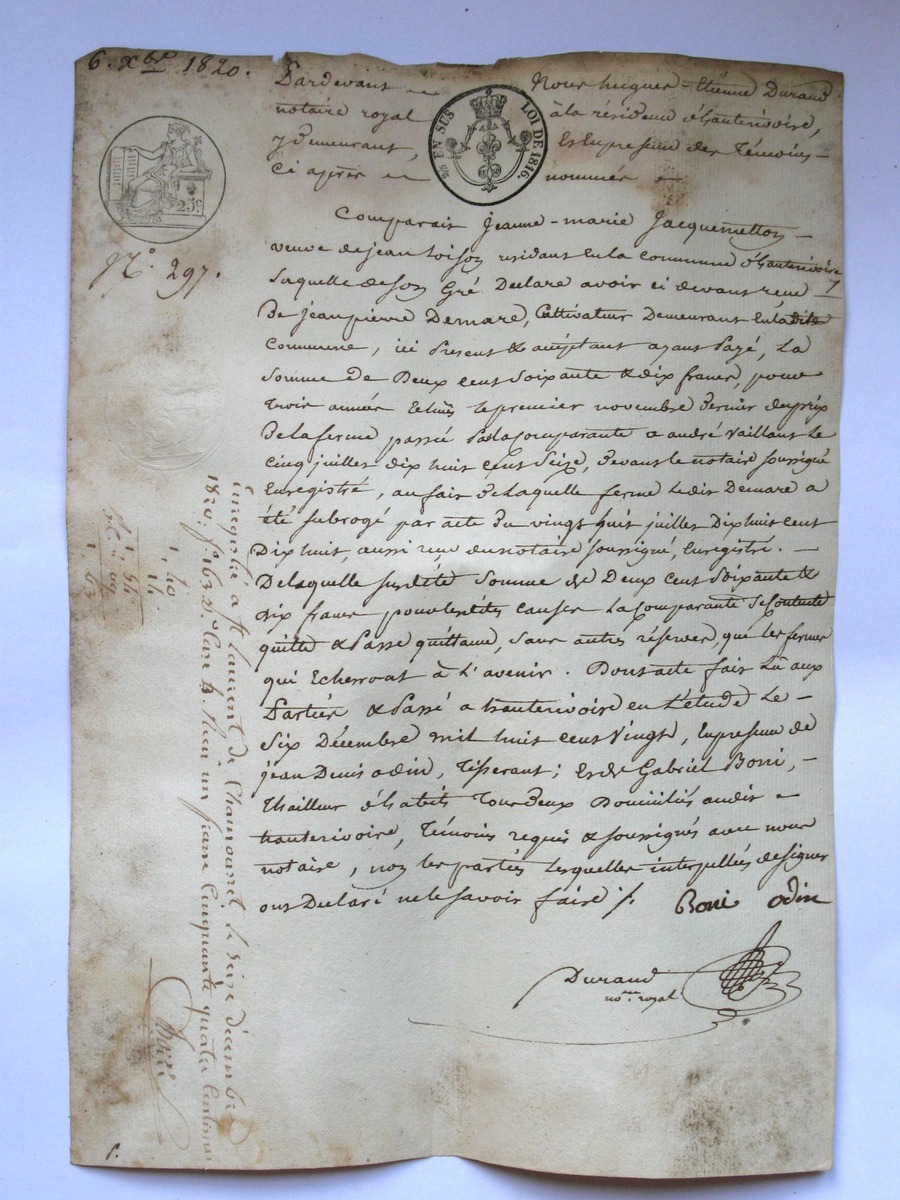 6. xbre 1820.
Pardevant Nous hugues-Etienne Durand
notaire royal à la résidence d'hauterivoire,
y demeurant, Et En presence des Témoins
ci après nommés
EN SUS LOI DE 1816.
25c.
No. 297.
Comparait Jeanne-marie Jacquemetton
veuve de jean Loison residant en la commune d'hauterivoire
Laquelle de son Gré Declare avoir ci devant reçu
De jean pierre Demare, Cultivateur Demeurant en la dite
commune, ici Present & acceptant ayant Payé, La
somme de Deux cent soixante & dix francs, pour
trois années Echues le premier novembre Dernier du prix
De la ferme passée Par la comparante a andré vaillant Le
cinq juillet dix huit cent Seize, devant le notaire soussigné
Enregistré, au fait de laquelle ferme ledit Demare a
été subrogé par acte du vingt huit juillet Dix huit cent
Dix huit, aussi reçu du notaire soussigné, Enregistré.
De laquelle susdite Somme de Deux cent soixante &
dix francs pour les dites causes La comparante Se Contente
quitte & Passe quittance, sans autres réserves, que les fermes
qui Echerront à L'avenir. Dont acte fait Lu aux
Parties & Passé a hauterivoire en L'étude Le
Six Décembre mil huit cent Vingt, En presence de
jean Denis odin, Tisserant; Et de Gabriel Boni,
thailleur d'habits Tous deux Domiciliés audit
hauterivoire, Témoins requis & soussignés avec nous
notaire, non les parties Lesquelles interpellées de signer
ont Declaré ne le savoir faire /.
Boni odin
Durand
nore. royal
Enregistré à St laurent de Chamousset le seize décembre
1820. fo. 163 Reçu un franc cinquante quatre centimes
1, 40
14
1. 54
09
1. 63